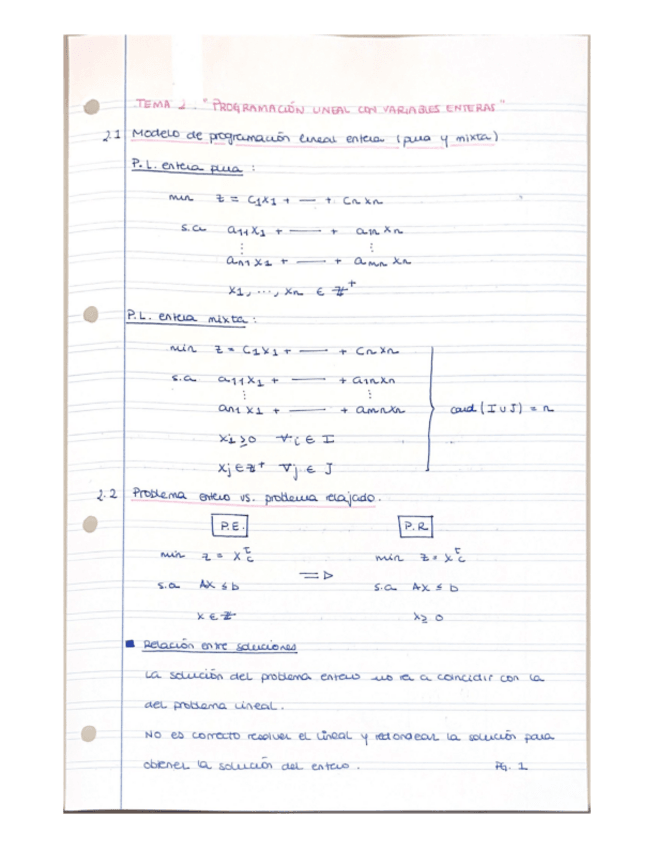 TEMA 2. "PROGRAMACIÓN LINEAL CON VARIABLES ENTERAS"
2.1 Modelo de programación lineal entera (pura y mixta)
P.L. entera pura:
min z = c1x1 + — + cnxn
s.a a11x1 + — + a1nxn
⋮ ⋮
an1x1 + — + amnxn
x1, ..., xn ∈ Z+
P.L. entera mixta:
min z = c1x1 + — + cnxn
s.a a11x1 + — + a1nxn
⋮ ⋮
an1x1 + — + amnxn card(I∪J) = n
xi ≥ 0 ∀i ∈ I
xj ∈ Z+ ∀j ∈ J
2.2 Problema entero vs. problema relajado.
P.E. P.R
min z = x^t c min z = x^t c
s.a Ax ≤ b ⇒ s.a Ax ≤ b
x ∈ Z x ≥ 0
■ Relación entre soluciones
La solución del problema entero no va a coincidir con la
del problema lineal.
No es correcto resolver el lineal y redondear la solución para
obtener la solución del entero. PG. 1